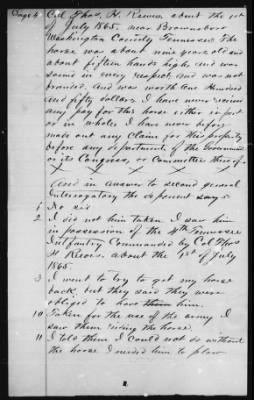 Page 4
Col Thos. H. Reeves about the 1st
of July 1865, near Brownsboro
Washington County Tennessee The
horse was about nine years old and
about fifteen hands high, and was
sound in every respect, and was not
branded. And was worth One Hundred
and fifty dollars. I have never received
any pay for this horse either in part
or in whole. I have never before
made out any Claim for this property
before any department of the Government
or its Congress, or Committee thereof-
X X X X X X
And in answer to second general
Interrogatory the deponent says
1 No sir
2 I did not him taken I saw him
in possession of the 4th Tennessee
Infantry Commanded by Col Thos
H Reeves. about the 1st of July
1865
3 I went to try to get my horse
back, but they said they were
obliged to have him.
10 Taken for the use of the army I
saw them riding the horse.
11 I told them I could not do without
the horse I needed him to plow